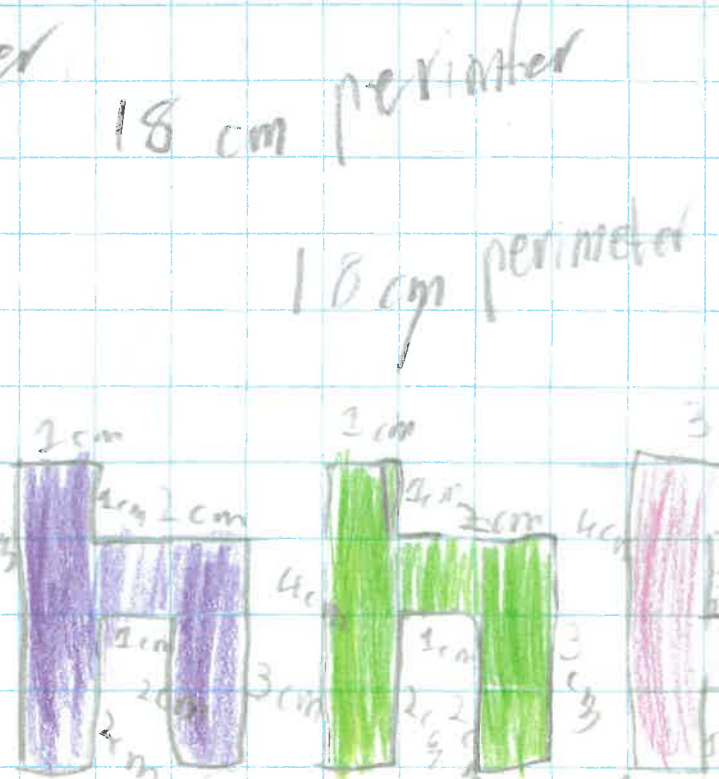 er
18 cm perimter
18 cm perimeter
1cm 1cm 3
1cm 2cm 1cm 2cm 4cm
3 4cm
1cm 1cm 3
2cm 3cm 2c 2 c 3
2cm